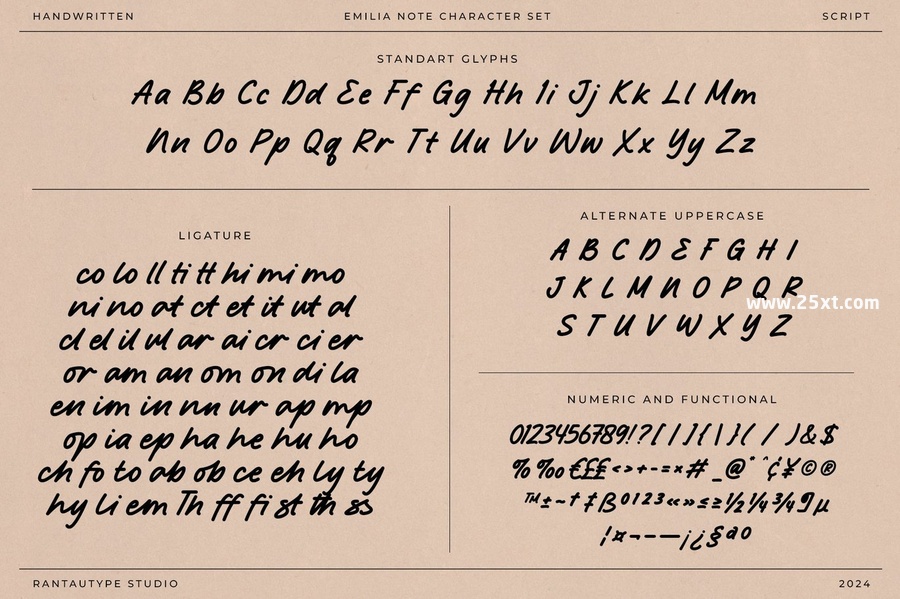 HANDWRITTEN
EMILIA NOTE CHARACTER SET
SCRIPT
STANDART GLYPHS
Aa Bb Cc Dd Ee Ff Gg Hh Ii Jj Kk Ll Mm
Nn Oo Pp Qq Rr Tt Uu Vv Ww Xx Yy Zz
LIGATURE
co lo ll ti tt hi mi mo
ni no at ct et it ut al
cl el il ul ar ai cr ci er
or am an om on di la
en im in nn ur ap mp
op ia ep ha he hu ho
ch fo to ab ob ce eh ly ty
hy li em Th ff fi st th ss
ALTERNATE UPPERCASE
A B C D E F G H I
J K L M N O P Q R
S T U V W X Y Z
www.25xt.com
NUMERIC AND FUNCTIONAL
0123456789!?[|]{|}( / )&$
%‰€££<>+-=×# _@°^¢¥©®
™±~†‡ß0123«»≤≥½¼¾
¦¤¬-–—¡¿§ªº
RANTAUTYPE STUDIO
2024